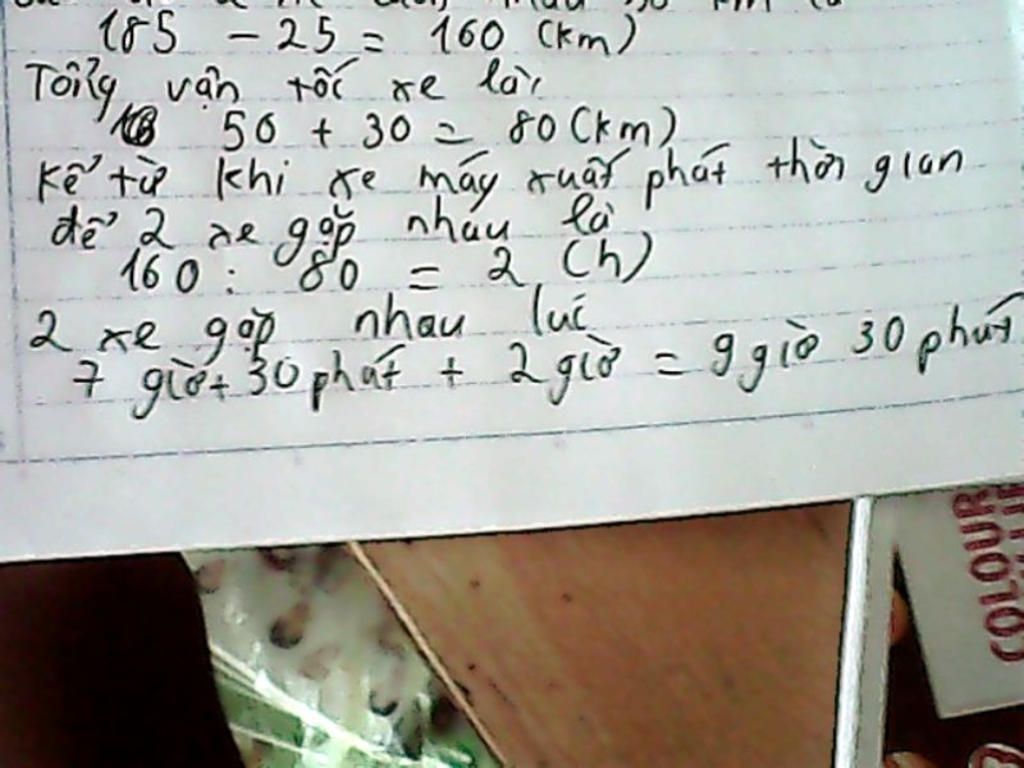 185 - 25 = 160 (km)
Tổng vận tốc xe là:
50 + 30 = 80 (km)
Kể từ khi xe máy xuất phát thời gian
để 2 xe gặp nhau là
160 : 80 = 2 (h)
2 xe gặp nhau lúc
7 giờ + 30 phút + 2 giờ = 9 giờ 30 phút
COLOUR